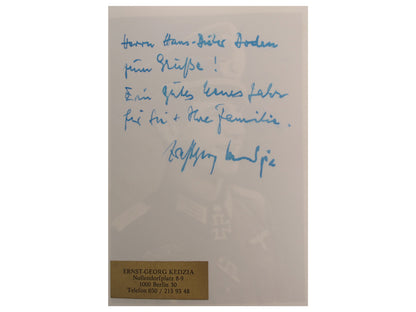 Herrn Hans-Dieter Boden
zum Gruße!
Ein gutes neues Jahr
für Sie + Ihre Familie.
ERNST-GEORG KEDZIA
Nollendorfplatz 8-9
1000 Berlin 30
Telefon 030 / 215 93 48